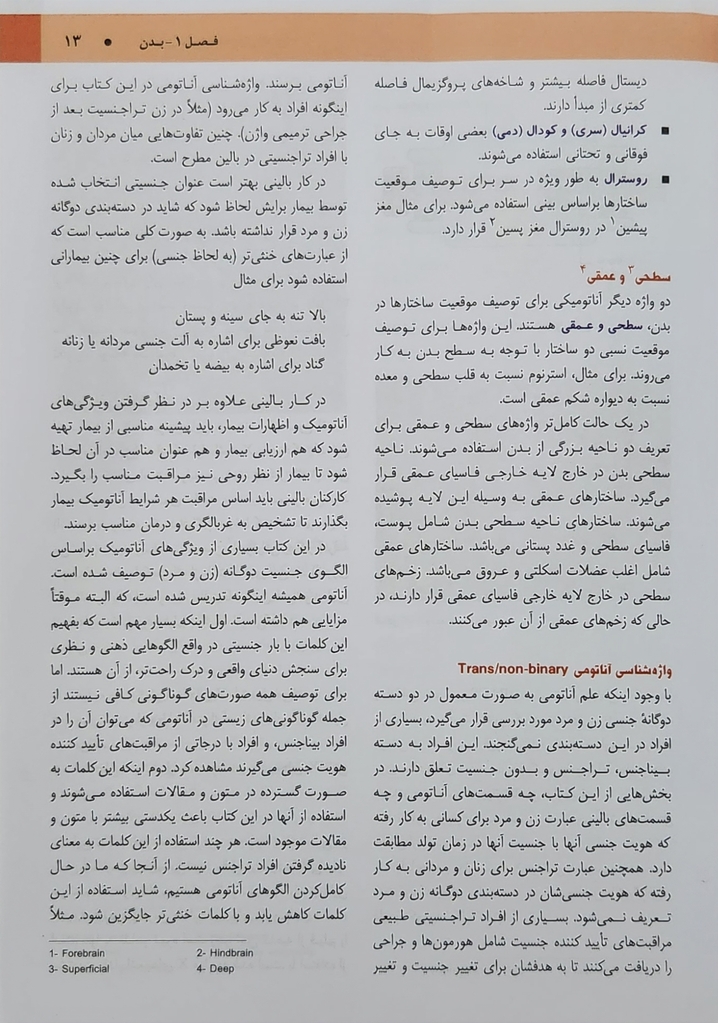 فصل ۱- بدن • ۱۳
دیستال فاصله بیشتر و شاخه‌های پروگزیمال فاصله
کمتری از مبدأ دارند.
■ کرانیال (سری) و کودال (دمی) بعضی اوقات به جای
فوقانی و تحتانی استفاده می‌شوند.
■ روسترال به طور ویژه در سر برای توصیف موقعیت
ساختارها براساس بینی استفاده می‌شود. برای مثال مغز
پیشین۱ در روسترال مغز پسین۲ قرار دارد.
سطحی۳ و عمقی۴
دو واژه دیگر آناتومیکی برای توصیف موقعیت ساختارها در
بدن، سطحی و عمقی هستند. این واژه‌ها برای توصیف
موقعیت نسبی دو ساختار با توجه به سطح بدن به کار
می‌روند. برای مثال، استرنوم نسبت به قلب سطحی و معده
نسبت به دیواره شکم عمقی است.
در یک حالت کامل‌تر واژه‌های سطحی و عمقی برای
تعریف دو ناحیه بزرگی از بدن استفاده می‌شوند. ناحیه
سطحی بدن در خارج لایه خارجی فاسیای عمقی قرار
می‌گیرد. ساختارهای عمقی به وسیله این لایه پوشیده
می‌شوند. ساختارهای ناحیه سطحی بدن شامل پوست،
فاسیای سطحی و غدد پستانی می‌باشد. ساختارهای عمقی
شامل اغلب عضلات اسکلتی و عروق می‌باشد. زخم‌های
سطحی در خارج لایه خارجی فاسیای عمقی قرار دارند، در
حالی که زخم‌های عمقی از آن عبور می‌کنند.
واژه‌شناسی آناتومی Trans/non-binary
با وجود اینکه علم آناتومی به صورت معمول در دو دسته
دوگانهٔ جنسی زن و مرد مورد بررسی قرار می‌گیرد، بسیاری از
افراد در این دسته‌بندی نمی‌گنجند. این افراد به دسته
بیناجنس، تراجنس و بدون جنسیت تعلق دارند. در
بخش‌هایی از این کتاب، چه قسمت‌های آناتومی و چه
قسمت‌های بالینی عبارت زن و مرد برای کسانی به کار رفته
که هویت جنسی آنها با جنسیت آنها در زمان تولد مطابقت
دارد. همچنین عبارت تراجنس برای زنان و مردانی به کار
رفته که هویت جنسی‌شان در دسته‌بندی دوگانه زن و مرد
تعریف نمی‌شود. بسیاری از افراد تراجنسیتی طبیعی
مراقبت‌های تأیید کننده جنسیت شامل هورمون‌ها و جراحی
را دریافت می‌کنند تا به هدفشان برای تغییر جنسیت و تغییر
آناتومی برسند. واژه‌شناسی آناتومی در این کتاب برای
اینگونه افراد به کار می‌رود (مثلاً در زن تراجنسیت بعد از
جراحی ترمیمی واژن). چنین تفاوت‌هایی میان مردان و زنان
با افراد تراجنسیتی در بالین مطرح است.
در کار بالینی بهتر است عنوان جنسیتی انتخاب شده
توسط بیمار برایش لحاظ شود که شاید در دسته‌بندی دوگانه
زن و مرد قرار نداشته باشد. به صورت کلی مناسب است که
از عبارت‌های خنثی‌تر (به لحاظ جنسی) برای چنین بیمارانی
استفاده شود برای مثال
بالا تنه به جای سینه و پستان
بافت نعوظی برای اشاره به آلت جنسی مردانه یا زنانه
گناد برای اشاره به بیضه یا تخمدان
در کار بالینی علاوه بر در نظر گرفتن ویژگی‌های
آناتومیک و اظهارات بیمار، باید پیشینه مناسبی از بیمار تهیه
شود که هم ارزیابی بیمار و هم عنوان مناسب در آن لحاظ
شود تا بیمار از نظر روحی نیز مراقبت مناسب را بگیرد.
کارکنان بالینی باید اساس مراقبت هر شرایط آناتومیک بیمار
بگذارند تا تشخیص به غربالگری و درمان مناسب برسند.
در این کتاب بسیاری از ویژگی‌های آناتومیک براساس
الگوی جنسیت دوگانه (زن و مرد) توصیف شده است.
آناتومی همیشه اینگونه تدریس شده است، که البته موقتاً
مزایایی هم داشته است. اول اینکه بسیار مهم است که بفهیم
این کلمات با بار جنسیتی در واقع الگوهایی ذهنی و نظری
برای سنجش دنیای واقعی و درک راحت‌تر، از آن هستند. اما
برای توصیف همه صورت‌های گوناگونی کافی نیستند از
جمله گوناگونی‌های زیستی در آناتومی که می‌توان آن را در
افراد بیناجنس، و افراد با درجاتی از مراقبت‌های تأیید کننده
هویت جنسی می‌گیرند مشاهده کرد. دوم اینکه این کلمات به
صورت گسترده در متون و مقالات استفاده می‌شوند و
استفاده از آنها در این کتاب باعث یکدستی بیشتر با متون و
مقالات موجود است. هر چند استفاده از این کلمات به معنای
نادیده گرفتن افراد تراجنس نیست. از آنجا که ما در حال
کامل‌کردن الگوهای آناتومی هستیم، شاید استفاده از این
کلمات کاهش یابد و با کلمات خنثی‌تر جایگزین شود. مثلاً
1- Forebrain 2- Hindbrain
3- Superficial 4- Deep